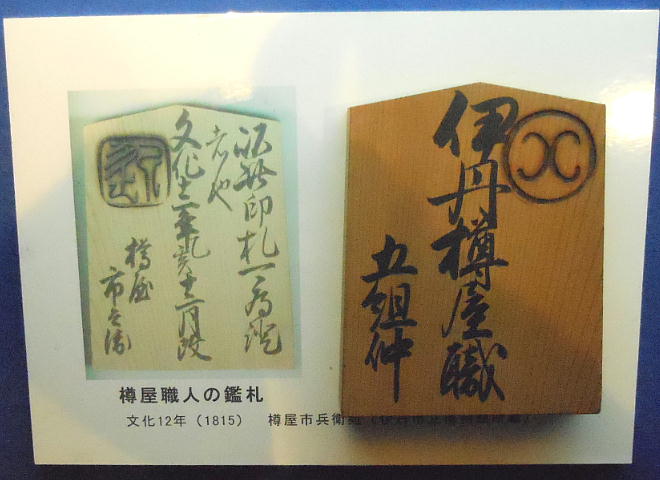 伊丹樽屋職
五組仲
印札
者也
文化十二年乙亥十二月改
樽屋
市兵衛
樽屋職人の鑑札
文化12年（1815）　樽屋市兵衛宛（伊丹市立博物館所蔵）